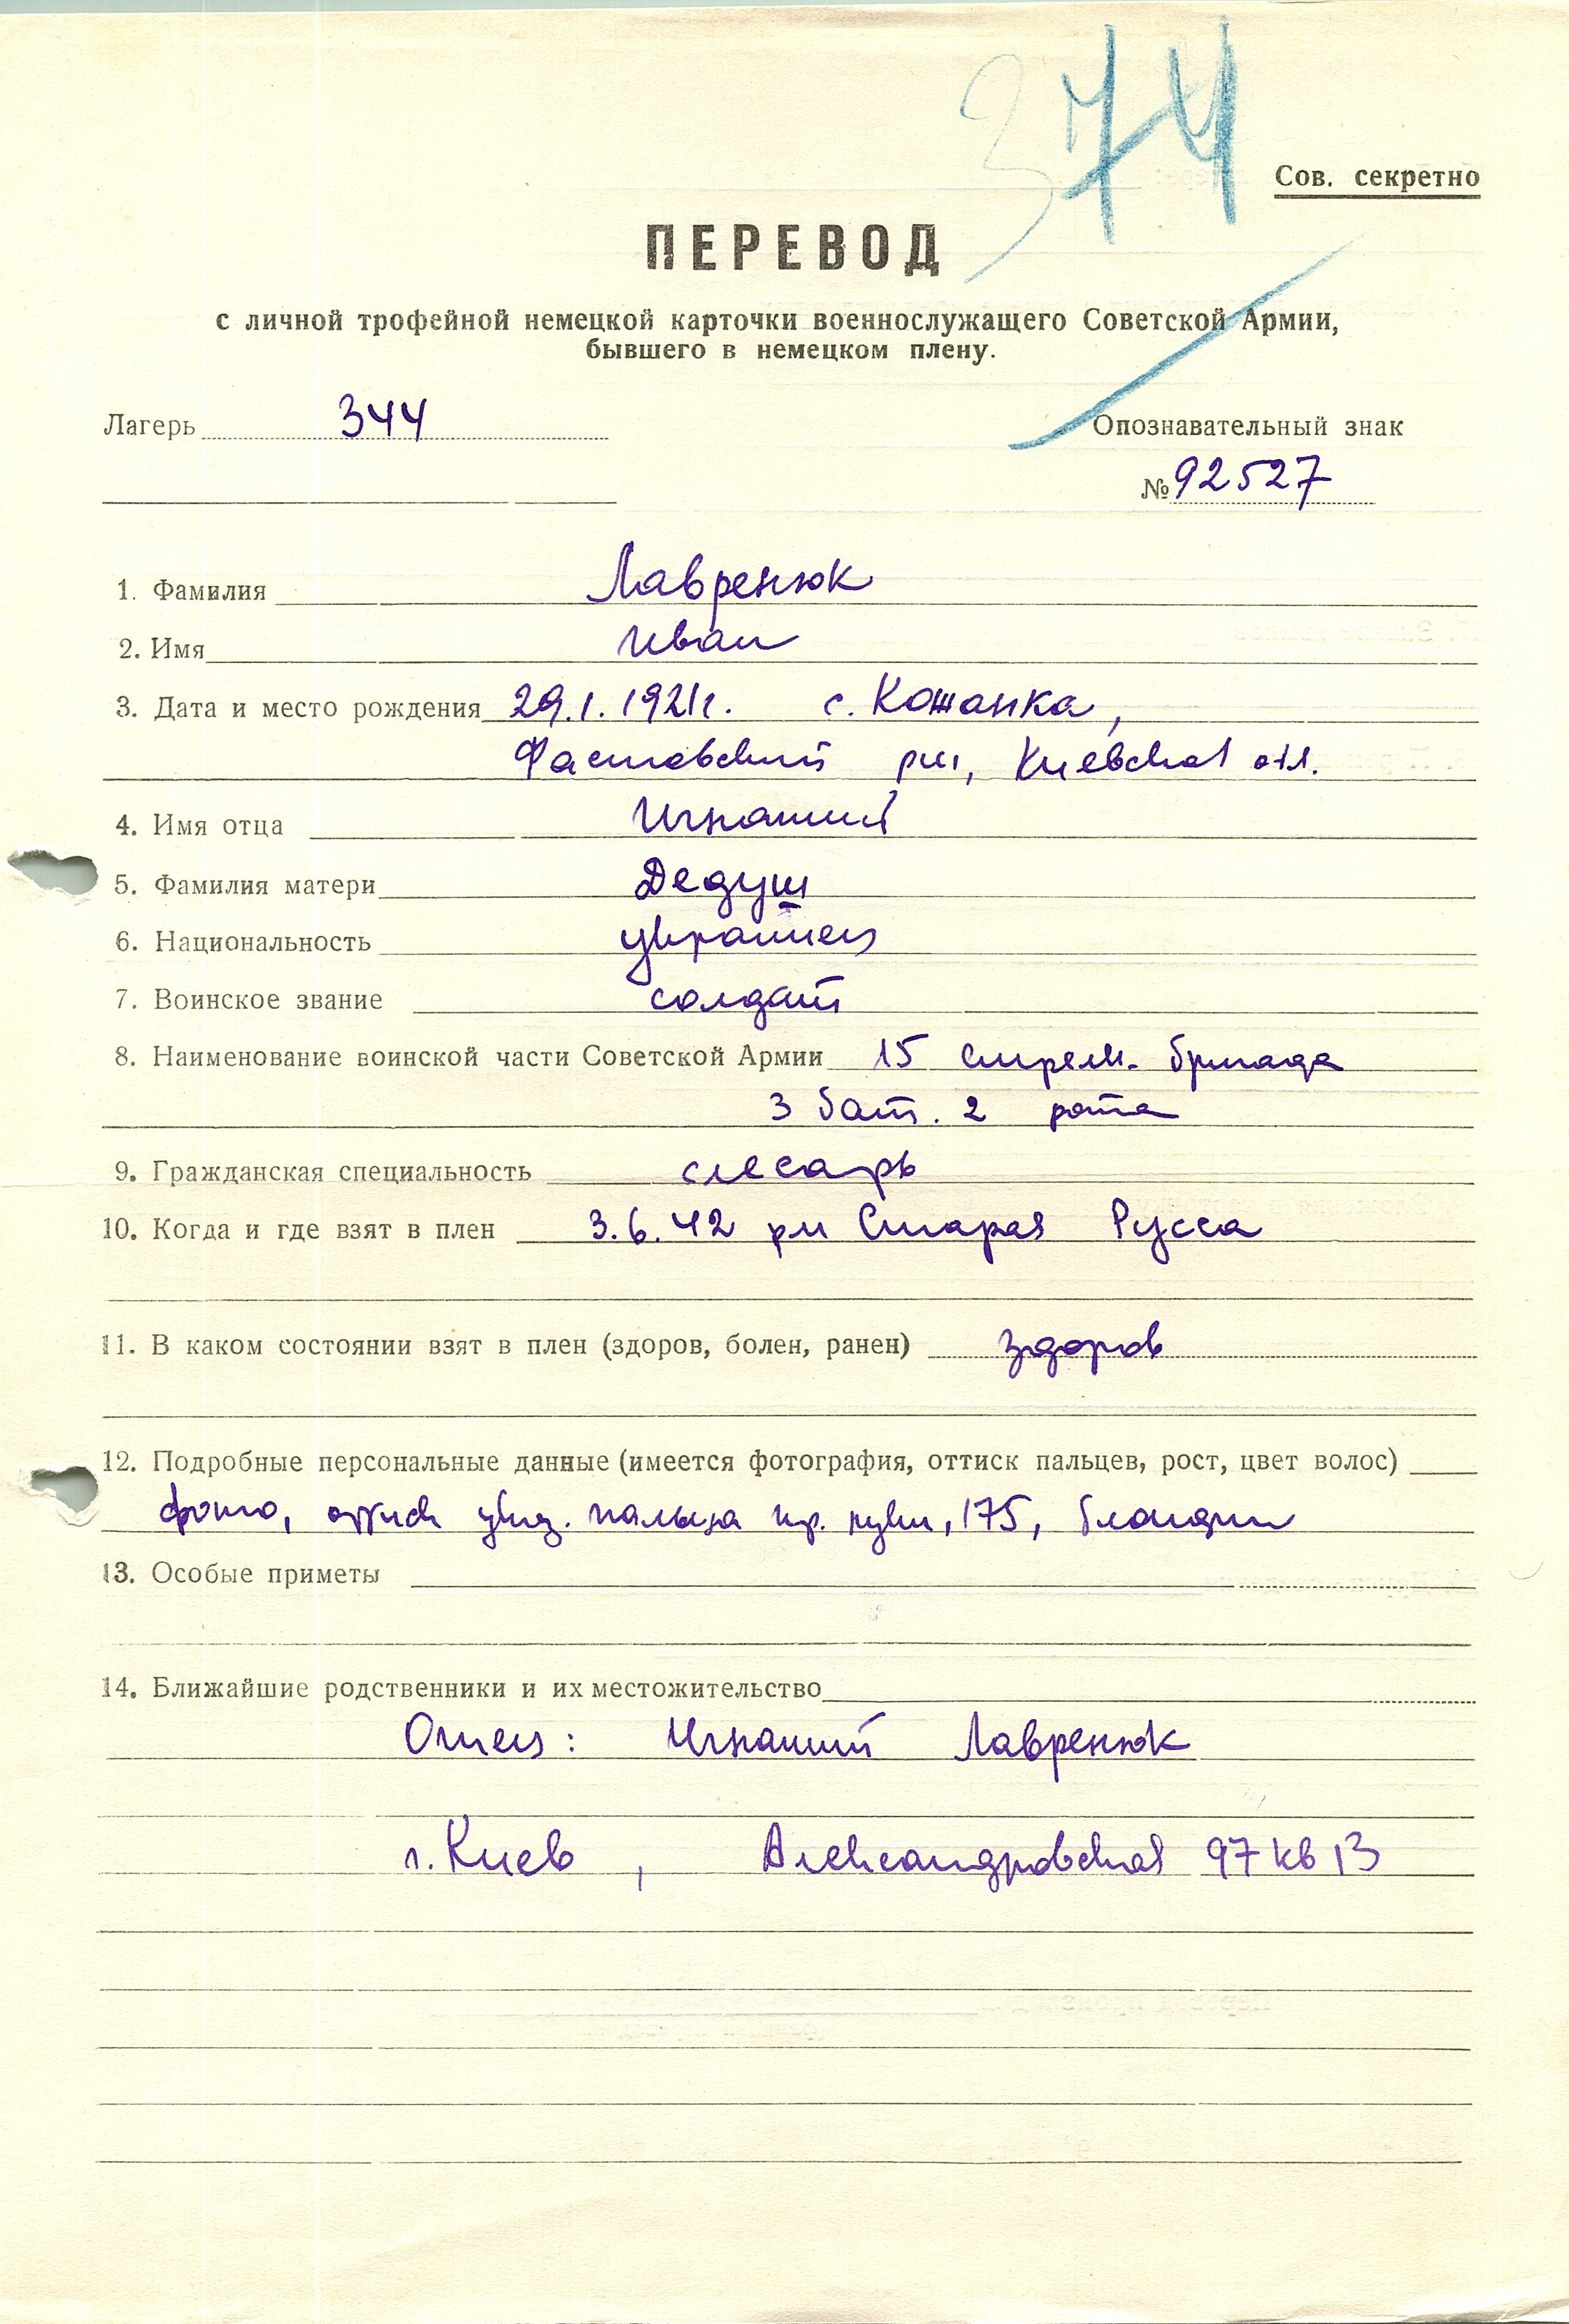 374
Сов. секретно
ПЕРЕВОД
с личной трофейной немецкой карточки военнослужащего Советской Армии,
бывшего в немецком плену.
Лагерь 344
Опознавательный знак
№ 92527
1. Фамилия Лавренюк
2. Имя Иван
3. Дата и место рождения 29.1.1921г. с. Кошанка,
Фастовский рн, Киевская обл.
4. Имя отца Игнатий
5. Фамилия матери Дедуш
6. Национальность украинец
7. Воинское звание солдат
8. Наименование воинской части Советской Армии 15 стрелк. бригада
3 бат. 2 рота
9. Гражданская специальность слесарь
10. Когда и где взят в плен 3.6.42 рн Старая Русса
11. В каком состоянии взят в плен (здоров, болен, ранен) здоров
12. Подробные персональные данные (имеется фотография, оттиск пальцев, рост, цвет волос)
фото, оттиск указ. пальца пр. руки, 175, блондин
13. Особые приметы
14. Ближайшие родственники и их местожительство
Отец: Игнатий Лавренюк
г. Киев, Александровская 97 кв 13